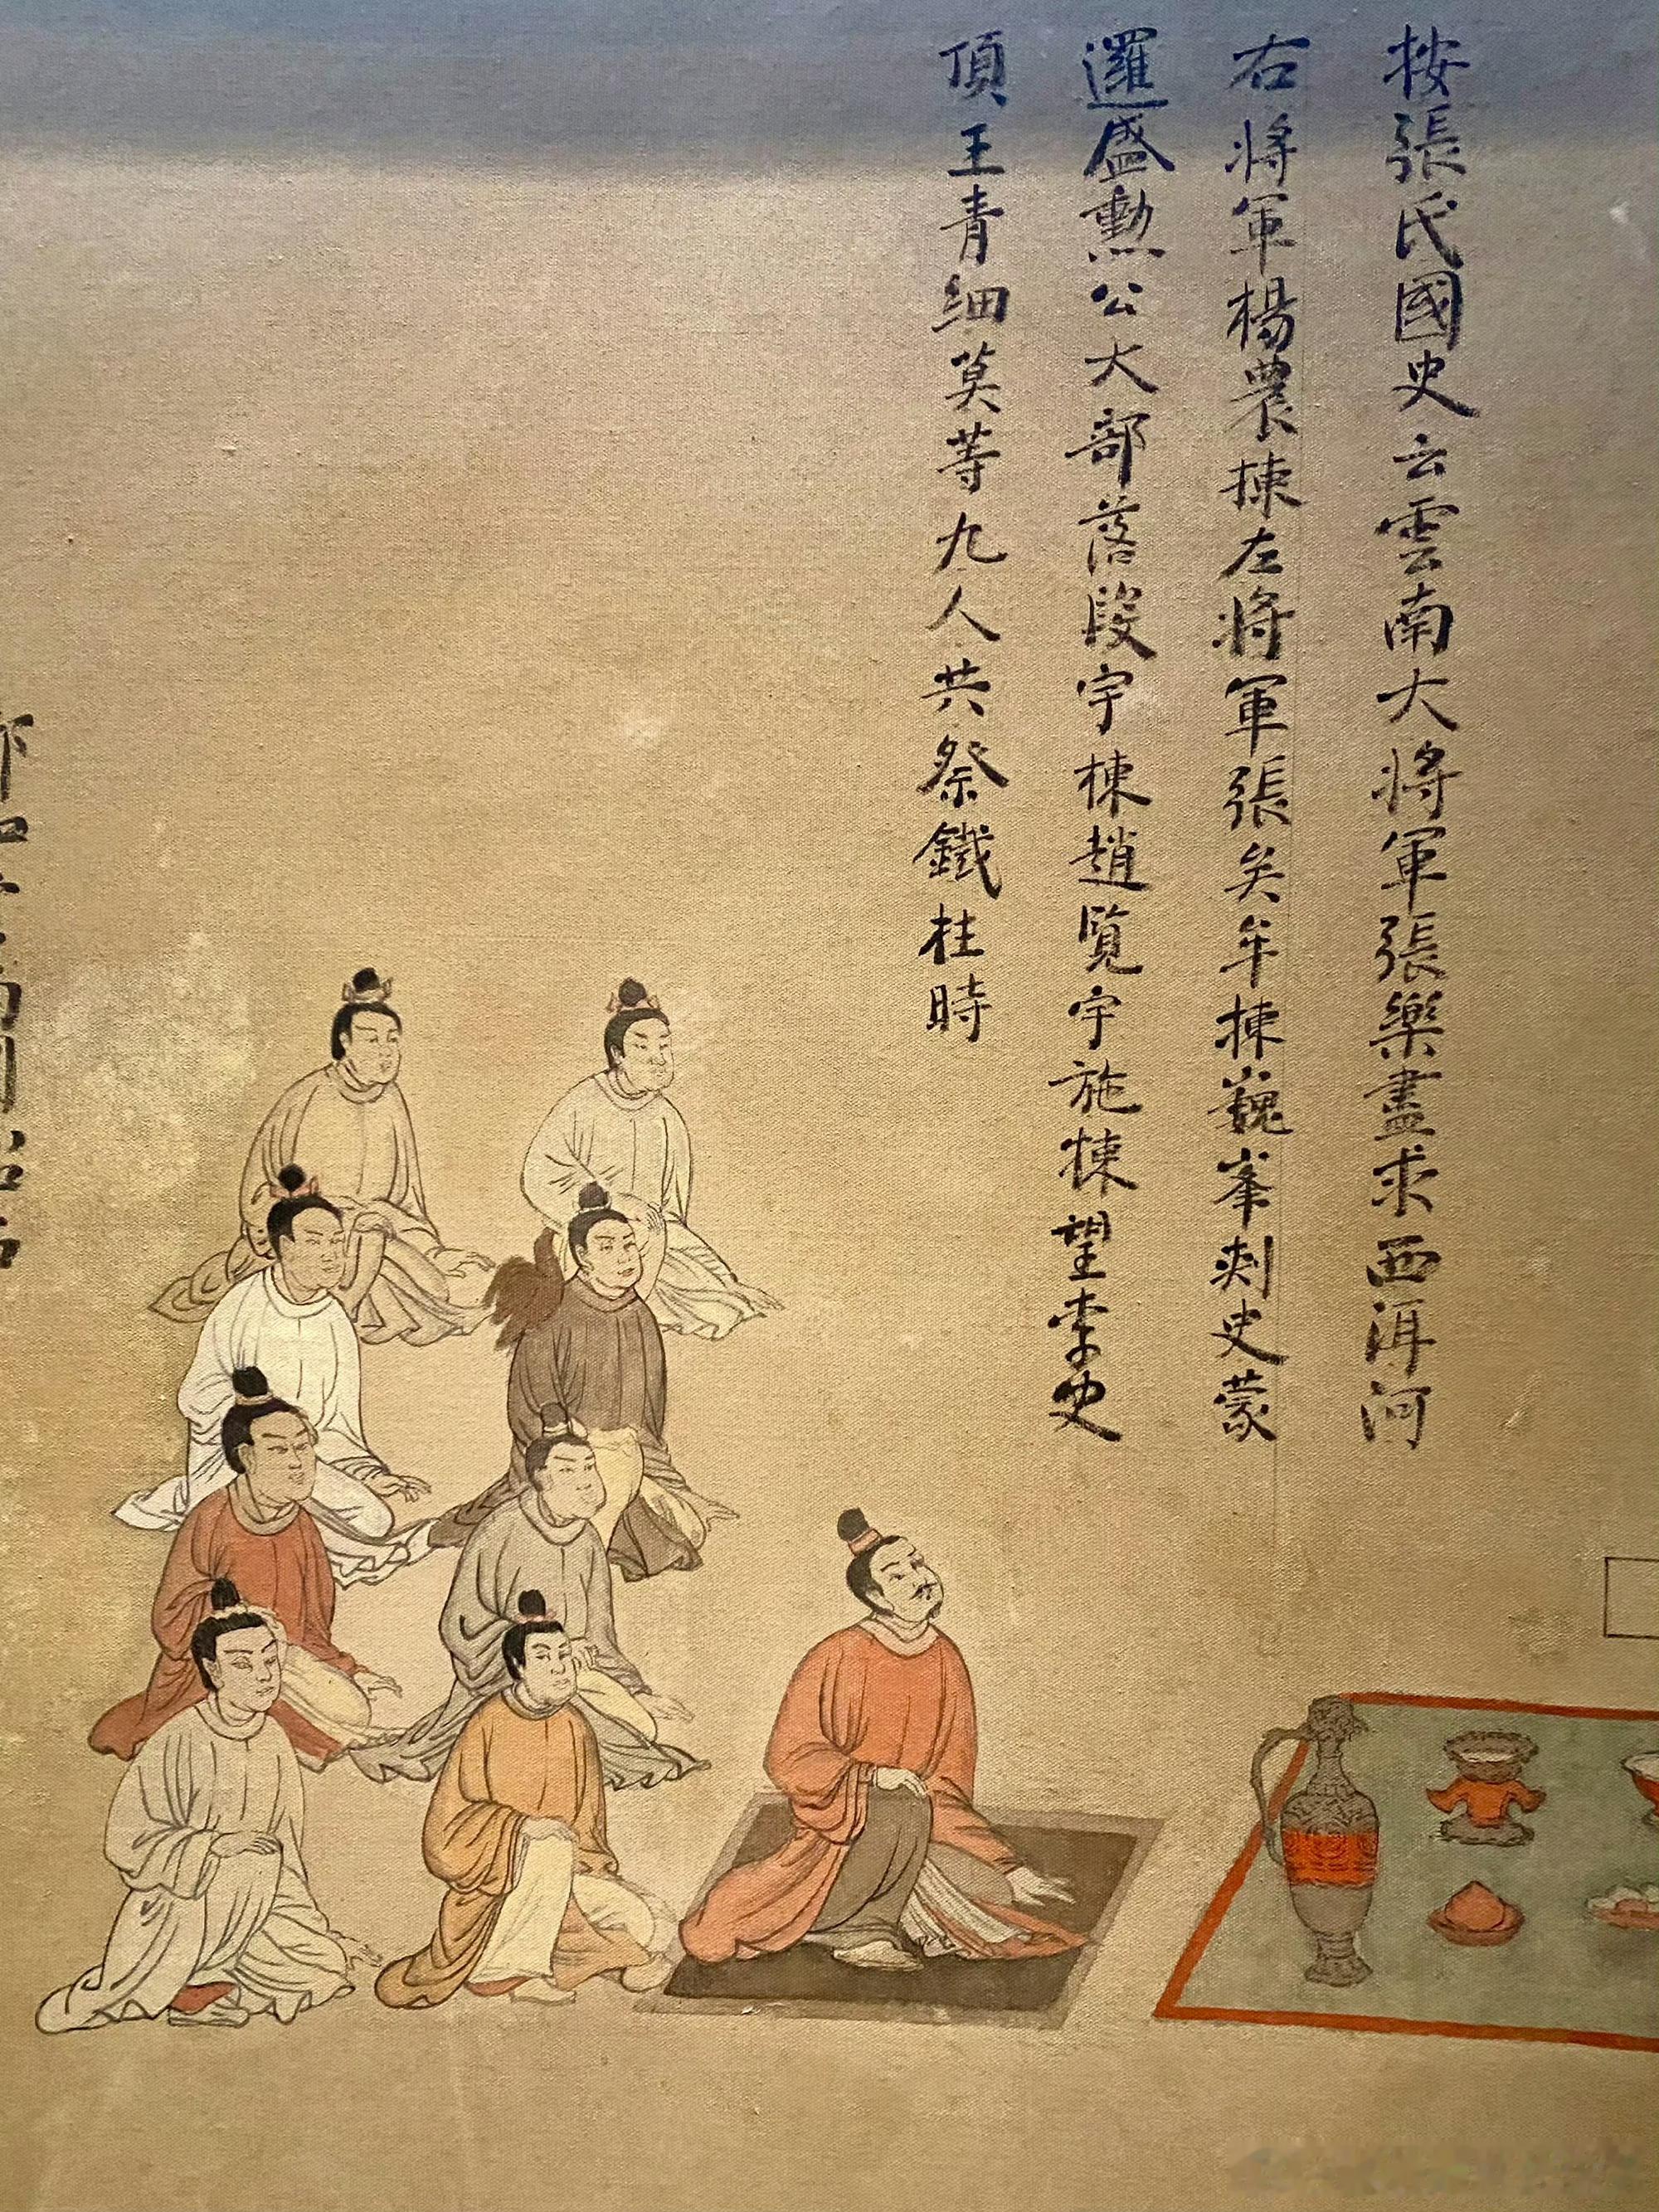 按張氏國史云雲南大將軍張樂盡求西洱河
右將軍楊農揀左將軍張矣牟揀巍峯刾史蒙
邏盛勲公大部落段宇棟趙覧宇施揀望李史
頂王青細莫等九人共祭鐵柱時